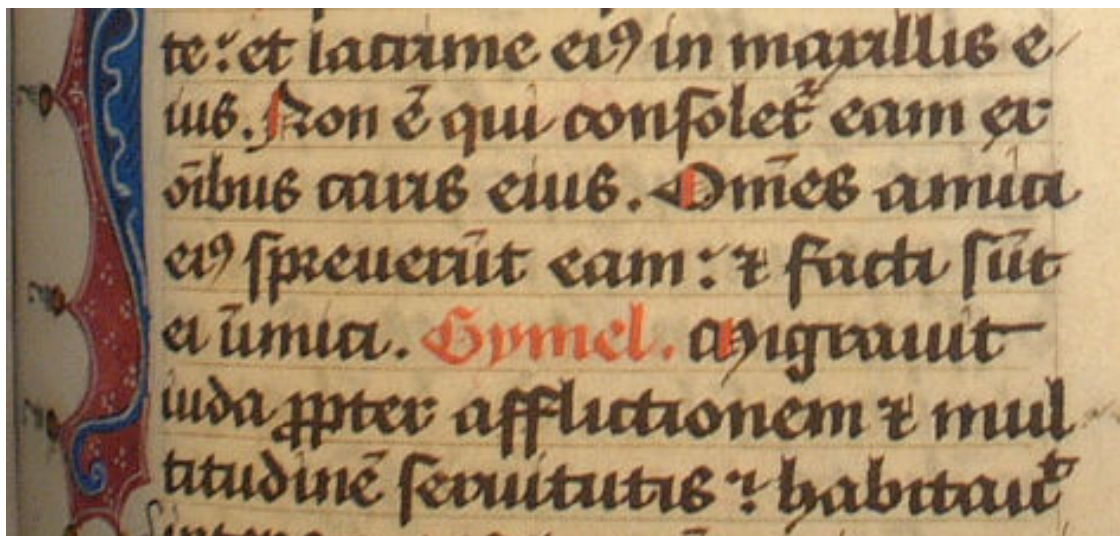 te: et lacrime eiꝰ in maxillis e
ius. Non ē qui consolet᷑ eam ex
oībus caris eius. Om̄es amici
eiꝰ spreuerūt eam: ⁊ facti sūt
ei īimici. Gymel. Migrauit
iuda ꝓpter afflictionem ⁊ mul
titudinē seruitutis ⁊ habitauit
inter